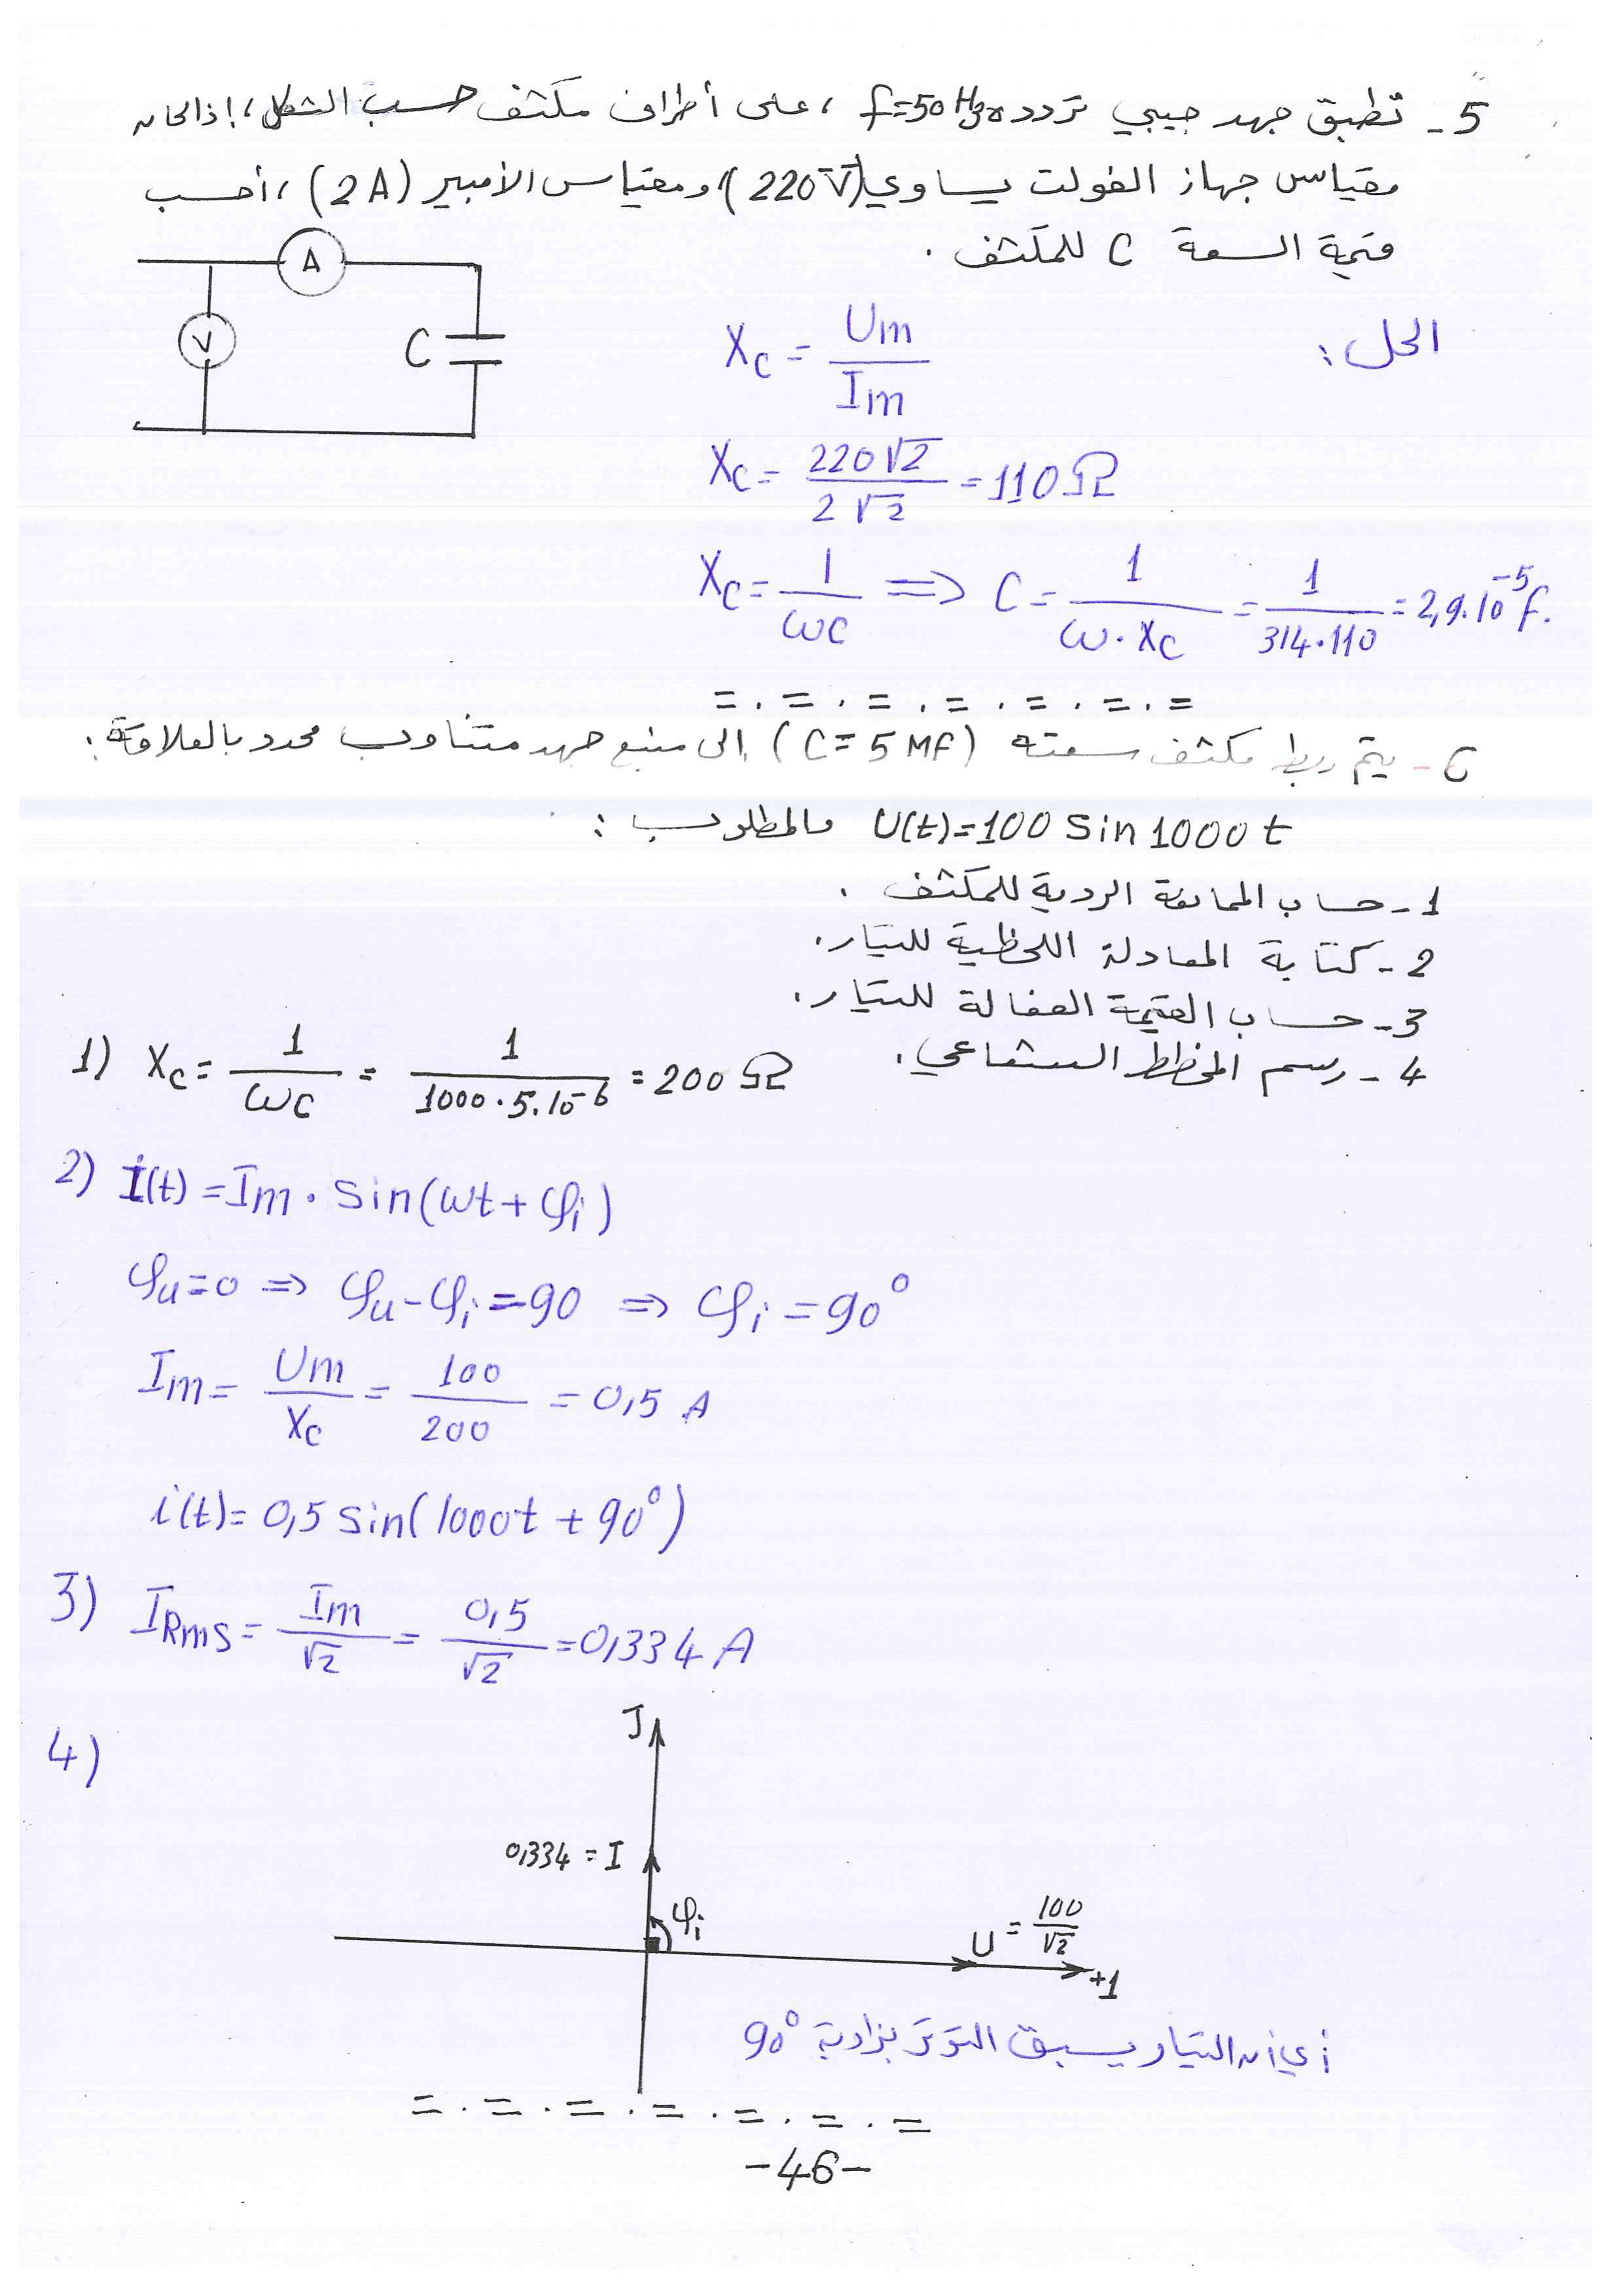 5- تطبق جهد جيبي تردده f=50 Hz ، على أطراف مكثف حسب الشكل ، إذا كان
مقياس جهاز الفولت يساوي (220V) ومقياس الأمبير (2A) ، أحسب
قيمة السعة C للمكثف .
A
V
C
الحل :
Xc = Um / Im
Xc = 220√2 / 2√2 = 110 Ω
Xc = 1 / ωC ⇒ C = 1 / ω·Xc = 1 / 314·110 = 2,9.10⁻⁵ f.
= . = . = . = . = . = . =
6- يتم ربط مكثف سعته (C = 5 MF) إلى منبع جهد متناوب محدد بالعلاقة :
U(t)=100 sin 1000 t والمطلوب :
1- حساب الممانعة الردية للمكثف .
2- كتابة المعادلة اللحظية للتيار .
3- حساب القيمة الفعالة للتيار .
4- رسم المخطط الشعاعي .
1) Xc = 1 / ωC = 1 / 1000·5.10⁻⁶ = 200 Ω
2) i(t) = Im · sin(ωt + φi)
φu=0 ⇒ φu-φi=90 ⇒ φi=90°
Im = Um / Xc = 100 / 200 = 0,5 A
i(t)= 0,5 sin(1000t + 90°)
3) IRms = Im / √2 = 0,5 / √2 = 0,334 A
4)
J
0,334 = I
φi
U = 100 / √2
+1
أي أن التيار يسبق التوتر بزاوية 90°
= . = . = . = . = . = . =
-46-